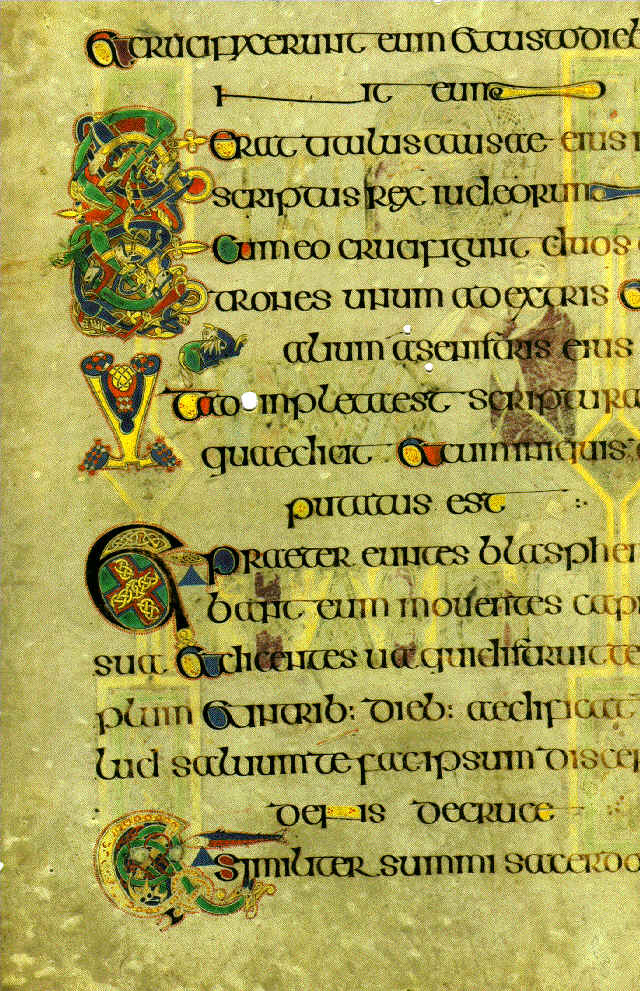 Et crucifixerunt eum et custodieb
nt eum
Erat titulus causae eius i
scriptus rex iudeorum
Et cum eo crucifigunt duos
trones unum ad extris &
alium asenistris eius
Et ad inpleta est scriptura
quae dicit et cum iniquis
putatus est
Et praeter euntes blasphem
bant eum mouentes capi
sua et dicentes ua qui distruit te
plum et in trib: dieb: aedificat
lud saluum te fac ipsum discen
dens decruce
Et similiter summi sacerdo